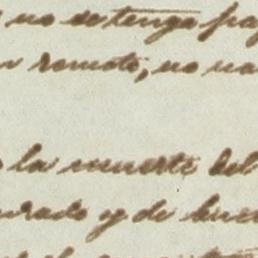 no se tenga pa
remoto, no va
la muerte del
rado y de bue